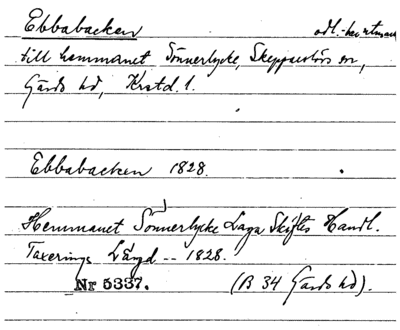 Ebbabacken odl.
till hemmanet Sönnerlycke, Skepparslövs sn,
Gärds hd, Krstd. l.
Ebbabacken 1828.
Hemmanet Sönnerlycke Laga Skiftes Handl.
Taxerings Längd -- 1828.
Nr 5337. (B 34 Gärds hd).